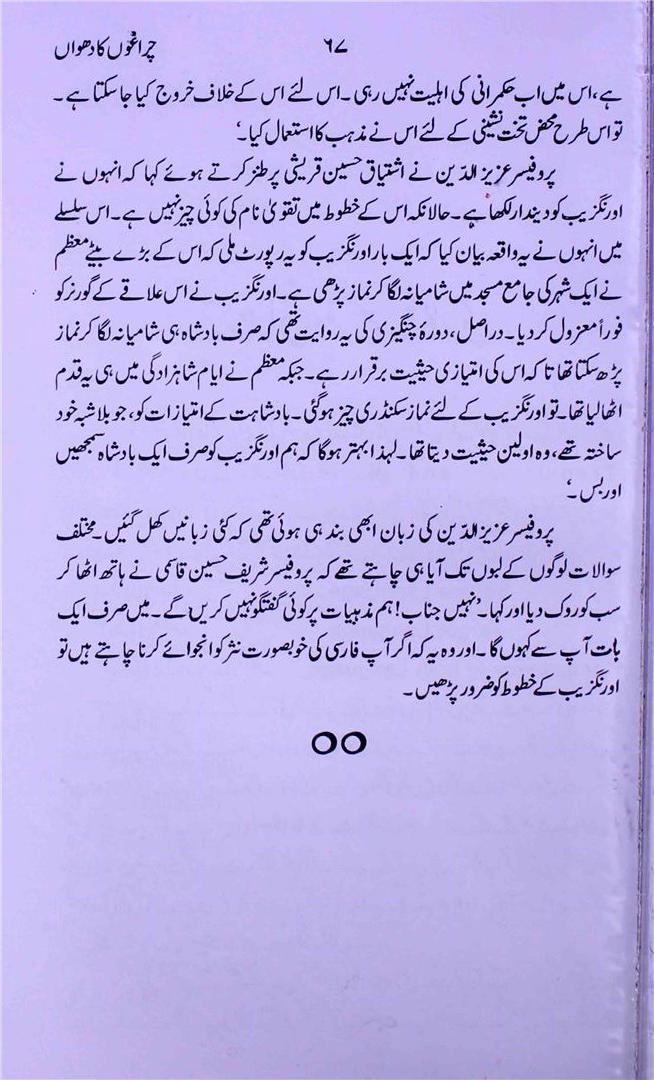 چراغوں کا دھواں ۶۷
ہے، اس میں اب حکمرانی کی اہلیت نہیں رہی۔ اس لئے اس کے خلاف خروج کیا جا سکتا ہے۔
تو اس طرح محض تخت نشینی کے لئے اس نے مذہب کا استعمال کیا۔‘
پروفیسر عزیز الدّین نے اشتیاق حسین قریشی پر طنز کرتے ہوئے کہا کہ انہوں نے
اورنگزیب کو دیندار لکھا ہے۔ حالانکہ اس کے خطوط میں تقویٰ نام کی کوئی چیز نہیں ہے۔ اس سلسلے
میں انہوں نے یہ واقعہ بیان کیا کہ ایک بار اورنگزیب کو یہ رپورٹ ملی کہ اس کے بڑے بیٹے معظم
نے ایک شہر کی جامع مسجد میں شامیانہ لگا کر نماز پڑھی ہے۔ اورنگزیب نے اس علاقے کے گورنر کو
فوراً معزول کر دیا۔ دراصل، دورۂ چنگیزی کی یہ روایت تھی کہ صرف بادشاہ ہی شامیانہ لگا کر نماز
پڑھ سکتا تھا تا کہ اس کی امتیازی حیثیت برقرار رہے۔ جبکہ معظم نے ایام شاہزادگی میں ہی یہ قدم
اٹھا لیا تھا۔ تو اورنگزیب کے لئے نماز سکنڈری چیز ہو گئی۔ بادشاہت کے امتیازات کو، جو بلاشبہ خود
ساختہ تھے، وہ اولین حیثیت دیتا تھا۔ لہذا بہتر ہوگا کہ ہم اورنگزیب کو صرف ایک بادشاہ سمجھیں
اور بس۔‘
پروفیسر عزیز الدّین کی زبان ابھی بند ہی ہوئی تھی کہ کئی زبانیں کھل گئیں۔ مختلف
سوالات لوگوں کے لبوں تک آیا ہی چاہتے تھے کہ پروفیسر شریف حسین قاسمی نے ہاتھ اٹھا کر
سب کو روک دیا اور کہا۔ ’نہیں جناب! ہم مذہبیات پر کوئی گفتگو نہیں کریں گے۔ میں صرف ایک
بات آپ سے کہوں گا۔ اور وہ یہ کہ اگر آپ فارسی کی خوبصورت نثر کو انجوائے کرنا چاہتے ہیں تو
اورنگزیب کے خطوط کو ضرور پڑھیں۔